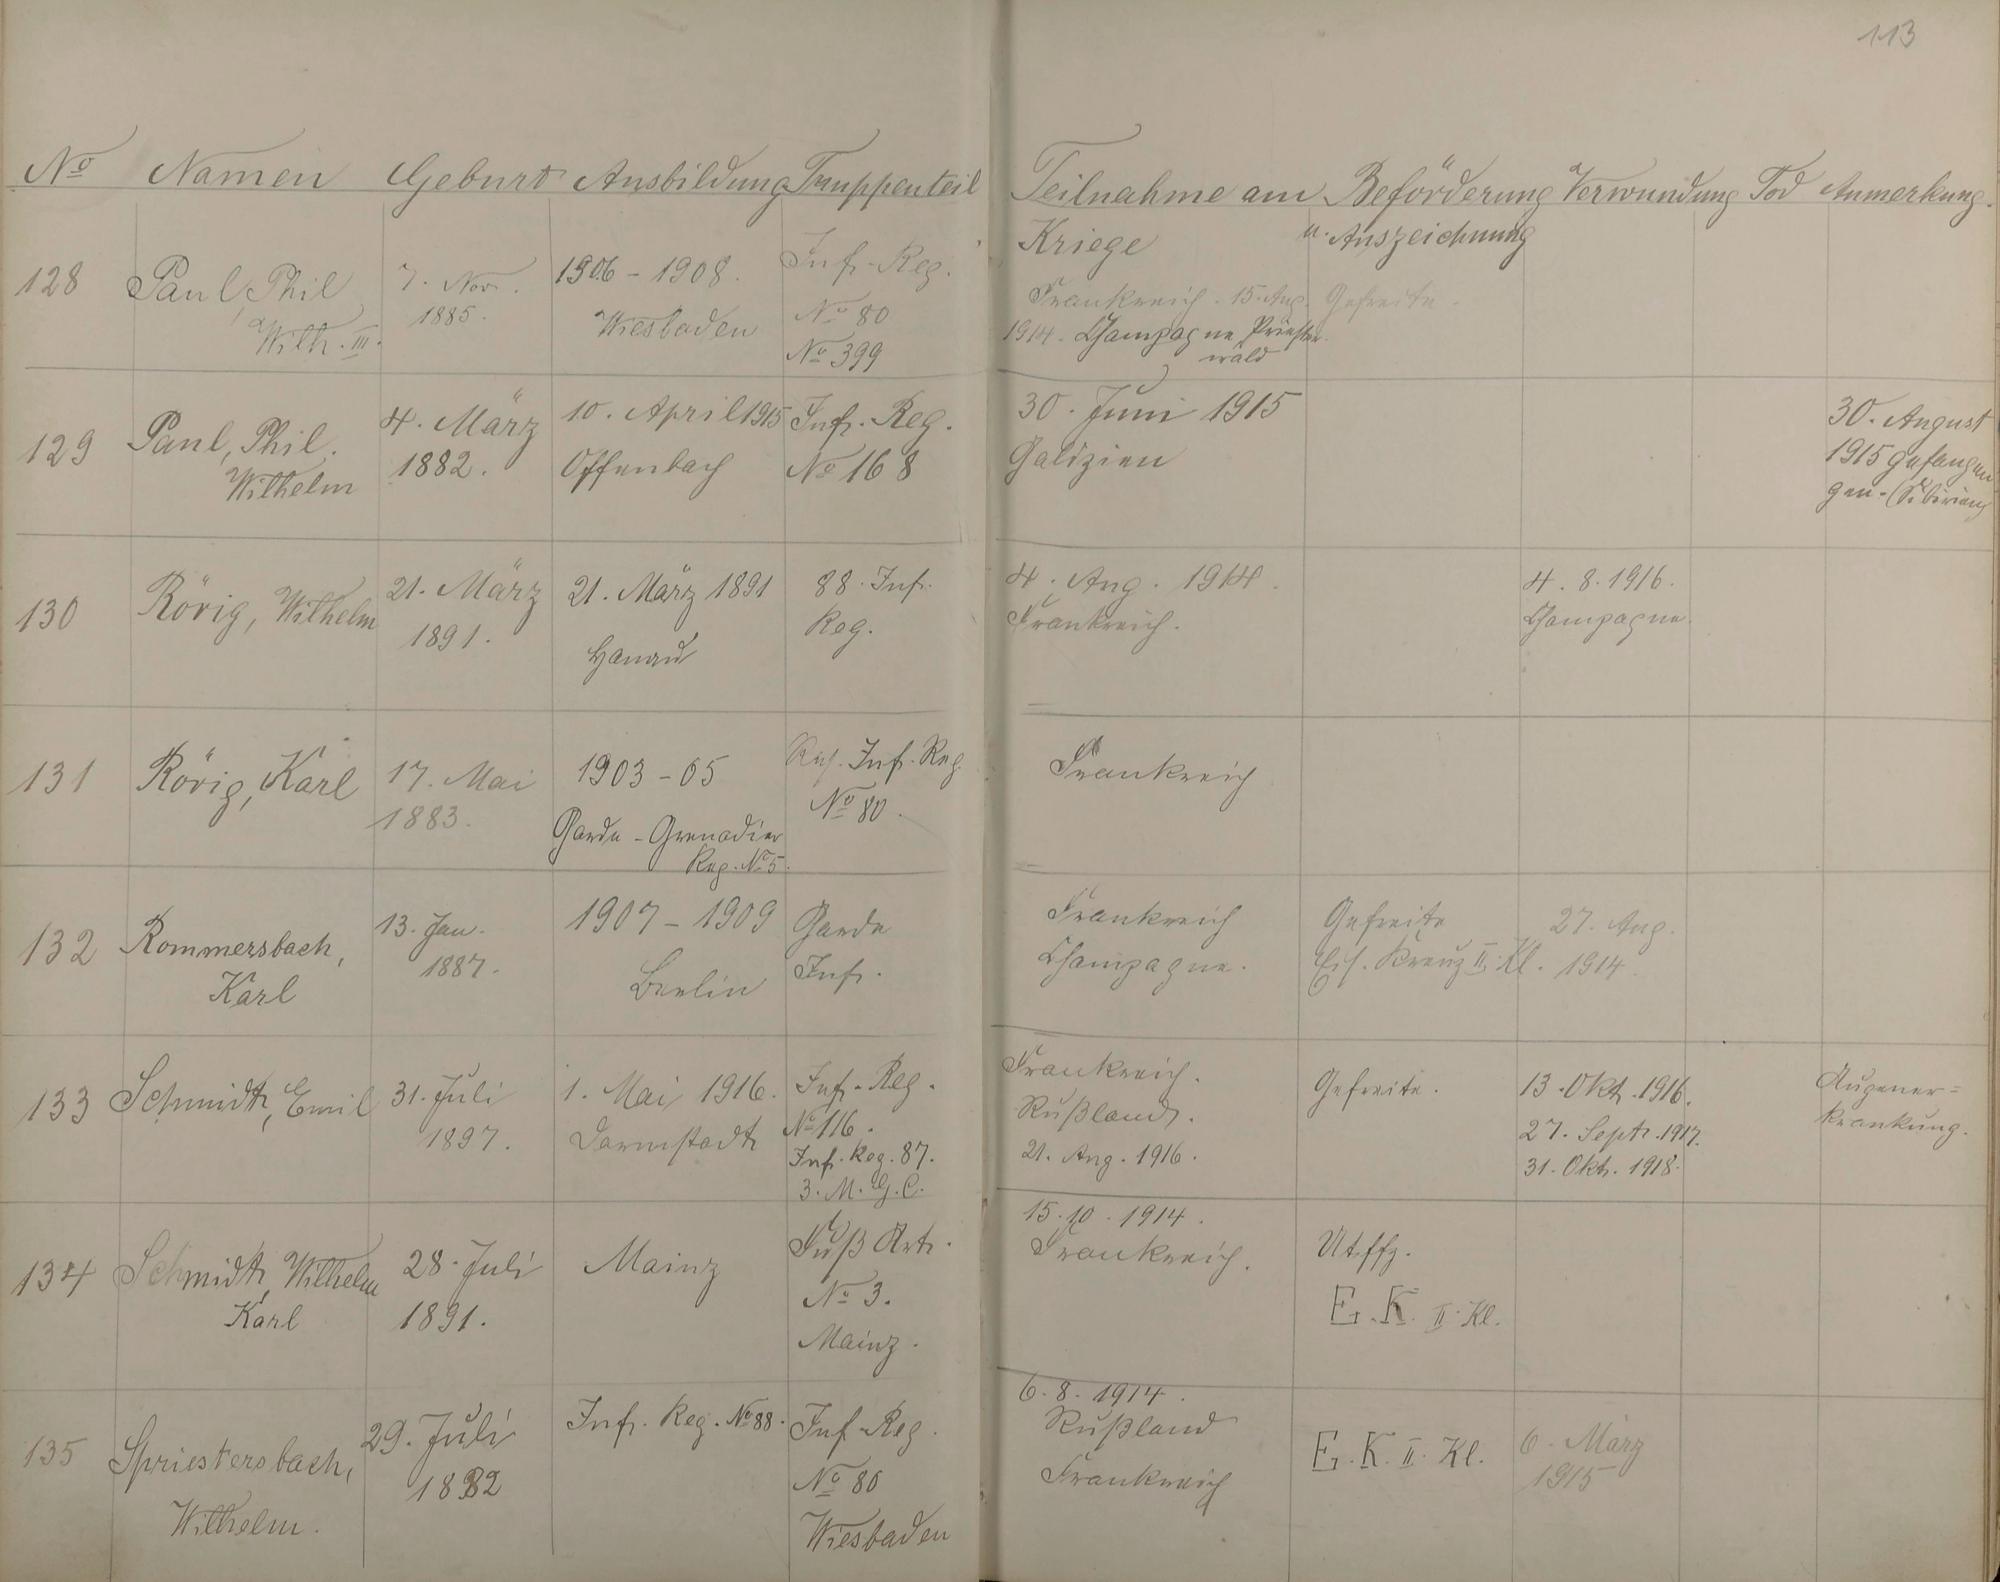 113
No Namen Geburt Ausbildung Truppenteil Teilnahme am Kriege Beförderung u. Auszeichnung Verwundung Tod Anmerkung.
128 Paul, Phil Wilh. III.
7. Nov. 1885.
1906 - 1908. Wiesbaden
Inf.-Reg. No 80 No 399
Frankreich. 15. Aug. 1914. Champagne Priesterwald
Gefreite.
129 Paul, Phil. Wilhelm
4. März 1882.
10. April 1915 Offenbach
Inf.-Reg. No 168
30. Juni 1915 Galizien
30. August 1915 gefangen gen. (Sibirien)
130 Rörig, Wilhelm
21. März 1891.
21. März 1891 Hanau
88. Inf. Reg.
4. Aug. 1914. Frankreich.
4. 8. 1916. Champagne.
131 Rörig, Karl
17. Mai 1883.
1903 - 05 Garde-Grenadier Reg. No 5.
Res. Inf. Reg. No 80.
Frankreich
132 Rommersbach, Karl
13. Jan. 1887.
1907 - 1909 Berlin
Garde Inf.
Frankreich Champagne.
Gefreite Eis. Kreuz II. Kl.
27. Aug. 1914.
133 Schmidt, Emil
31. Juli 1897.
1. Mai 1916. Darmstadt
Inf.-Reg. No 116. Inf. Reg. 87. 3. M. G. C.
Frankreich. Rußland. 21. Aug. 1916.
Gefreite.
13. Okt. 1916. 27. Sept. 1917. 31. Okt. 1918.
Augener=krankung.
134 Schmidt, Wilhelm Karl
28. Juli 1891.
Mainz
Fuß Art. No 3. Mainz.
15. 10. 1914. Frankreich.
Utffz. E. K. II. Kl.
135 Spriestersbach, Wilhelm.
29. Juli 1882
Inf. Reg. No 88.
Inf-Reg. No 80 Wiesbaden
6. 8. 1914. Rußland Frankreich
E. K. II. Kl.
6. März 1915